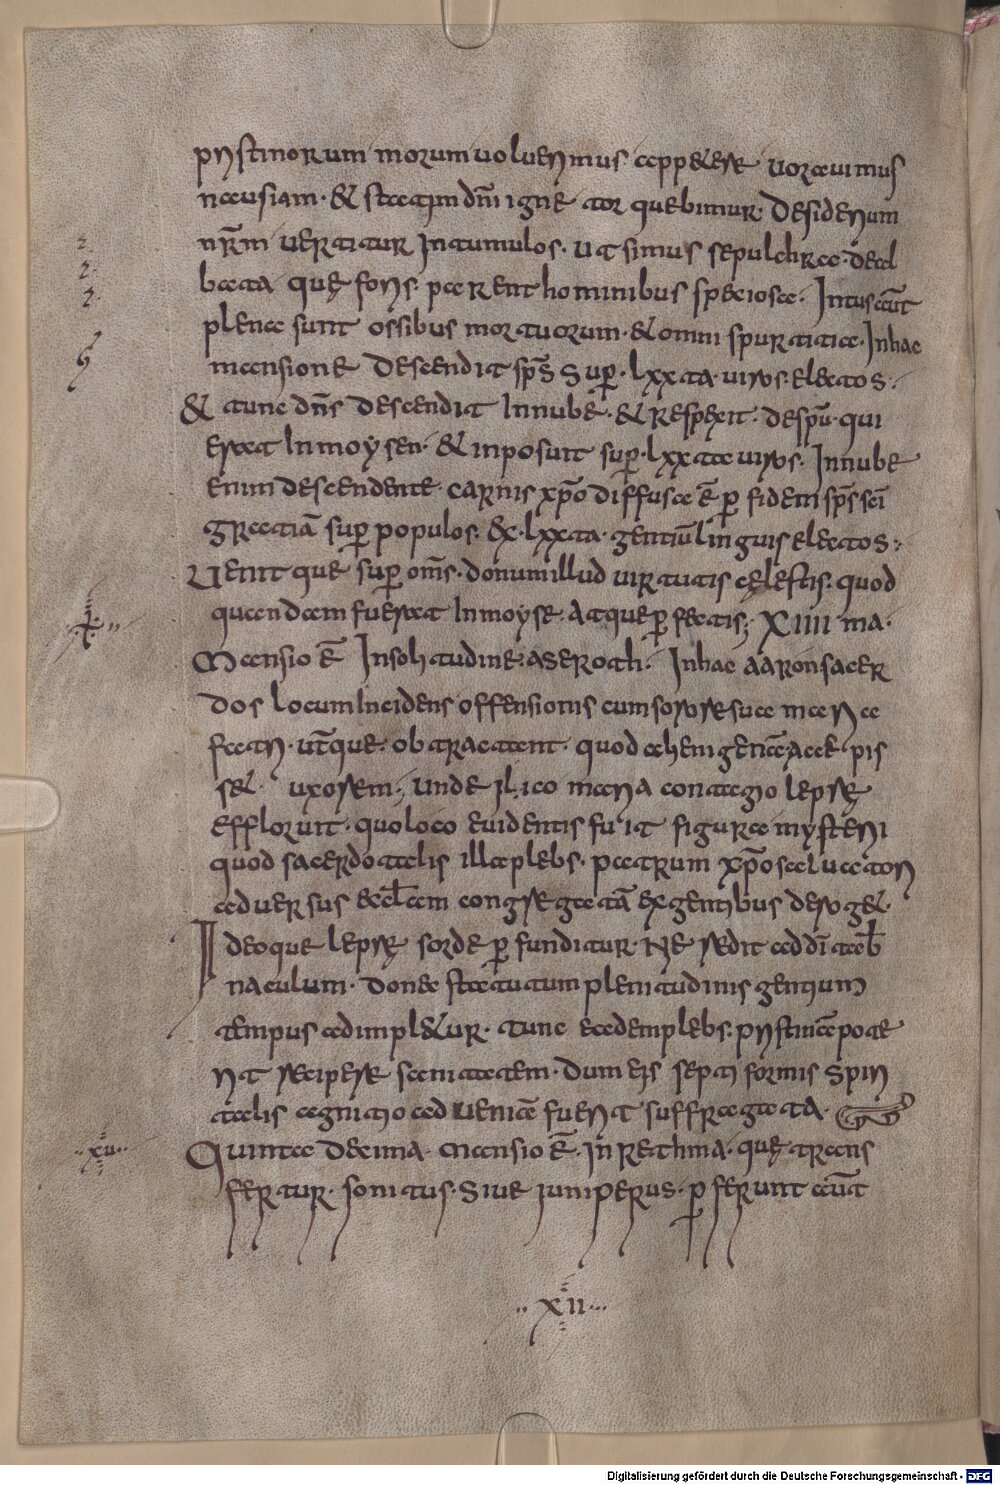 pristinorum morum uoluerimus appetere uorauimus
nausiam· & statim dm̄ igne torquebimur· Desiderium
nr̄m uertitur Intumulos· ut simus sepulchra· deal
bata quę foris· parent hominibus speciosa· Intus aūt
plena sunt ossibus mortuorum· & omni spurtitia· Inhac
mansione Descendit sps̄ Sup̄· lxxta· uiros· electos·
& tunc dn̄s descendit Innube· & respexit· despū· qui
erat Inmoysen· & inposuit sup̄· lxxta uiros· Innube
enim descendente· carnis xp̄o diffusa ē p̄ fidem sp̄s scī
gratiā sup̄ populos· &c· lxxta· gentiū linguis electos·
Uenitque sup̄ om̄s· donum illud uirtutis cęlestis· quod
quendam fuerat Inmoyse· atque p̄fectis; XIIII ma·
Mansio ē Insolitudine· aseroth· Inhac aaron sacer
dos locum Incidens offensionis cum sorore sua maria
facti· utq̄ue· obtractent· quod ethenigenā accepis
s& uxorem; unde Ilico maria contagio leprę
effloruit· quoloco euidentis fuit figura mysterii
quod sacerdotalis illa plebs· patrum xp̄o saluatori
aduersus eccl̄am congregatā ex gentibus deroget·
Ideoque leprę sorde p̄funditur· Ne redit ad dī tab̄
naculum· Donec statutum plenitudinis gentium
tempus adimpl&ur· tunc eadem plebs· pristinā pote
rit recipere sanitatem· Dum eis septiformis Spiri
talis agnitio aduenia fuerit suffragata·
·xu· Quinta Decima· Mansio ē· In rethma· quę trans
fertur· sonitus· Siue Iuniperus· p̄ferunt aūt
··XII···
Digitalisierung gefördert durch die Deutsche Forschungsgemeinschaft - DFG